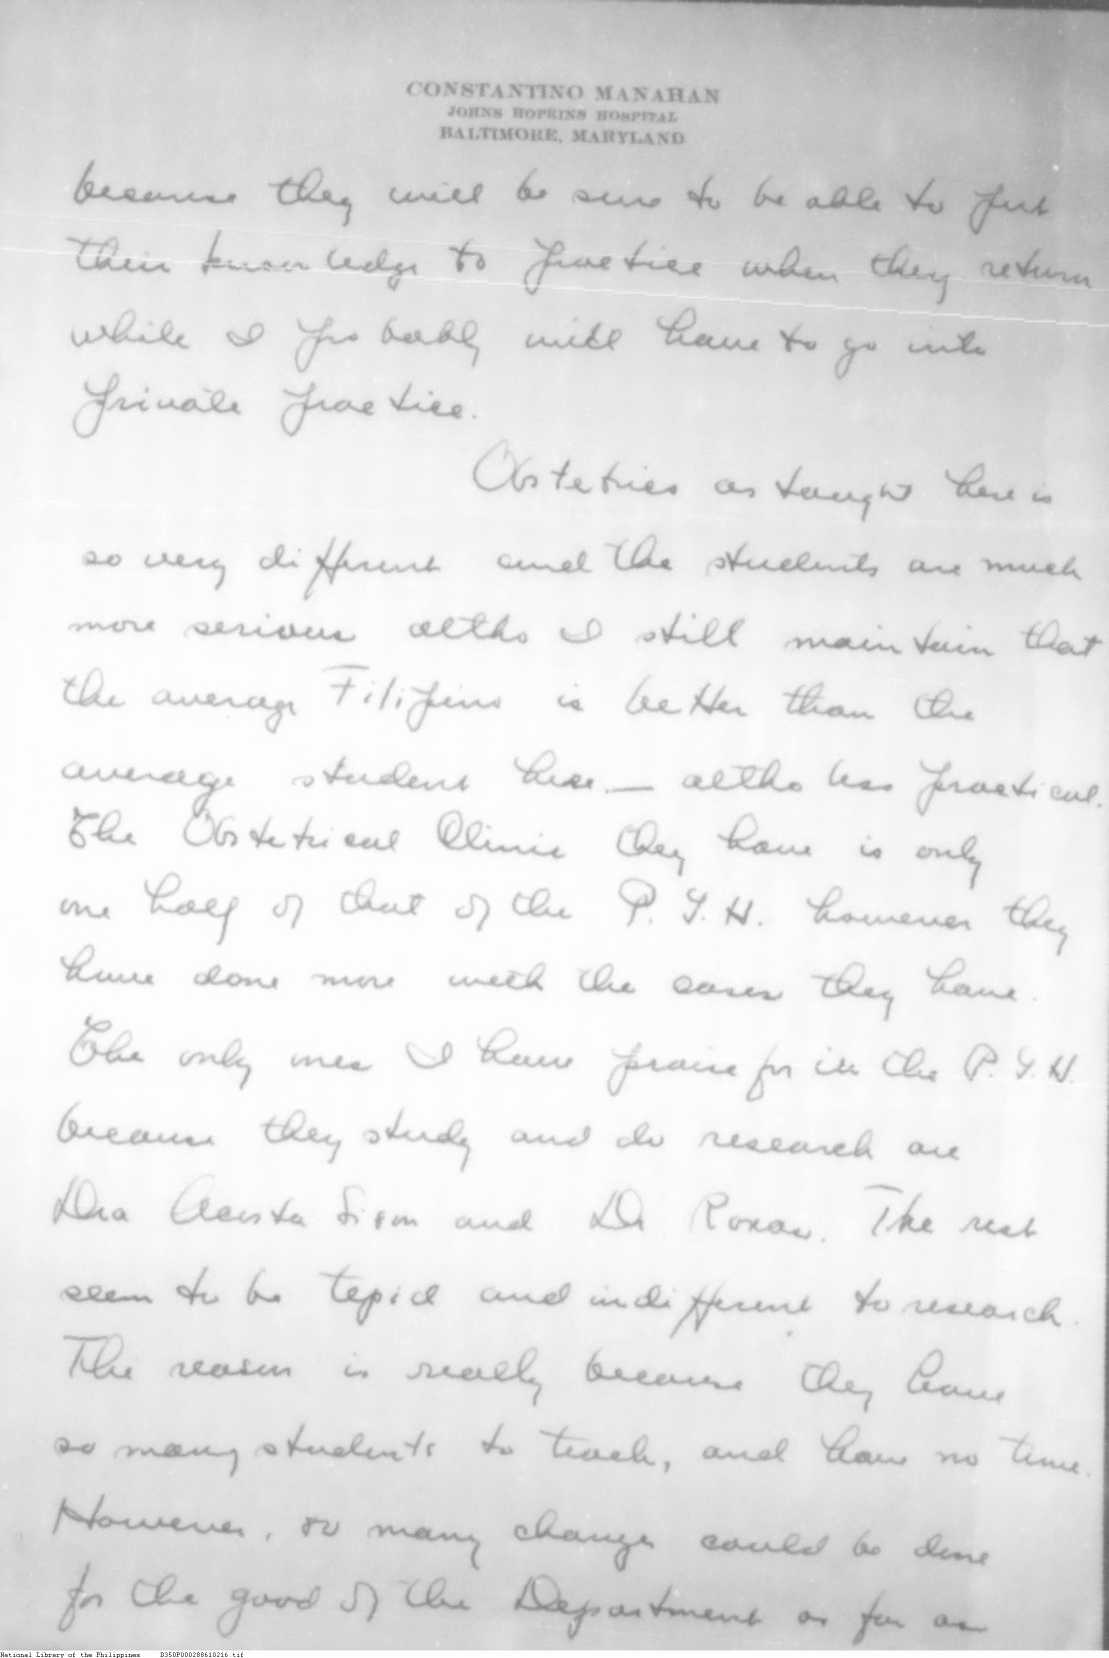 CONSTANTINO MANAHAN
JOHNS HOPKINS HOSPITAL
BALTIMORE, MARYLAND
because they will be sure to be able to put
their knowledge to practice when they return
while I probably will have to go into
private practice.
Obstetrics as taught here is
so very different and the students are much
more serious altho I still maintain that
the average Filipino is better than the
average student here — altho less practical.
The Obstetrical Clinic they have is only
one half of that of the P. G. H. however they
have done more with the cases they have.
The only ones I have praise for in the P. G. H.
because they study and do research are
Dra Acosta Sison and Dr Roxas. The rest
seem to be tepid and indifferent to research.
The reason is really because they have
so many students to teach, and have no time.
However, so many changes could be done
for the good of the Department as far as
National Library of the Philippines D350P000288610216.tif